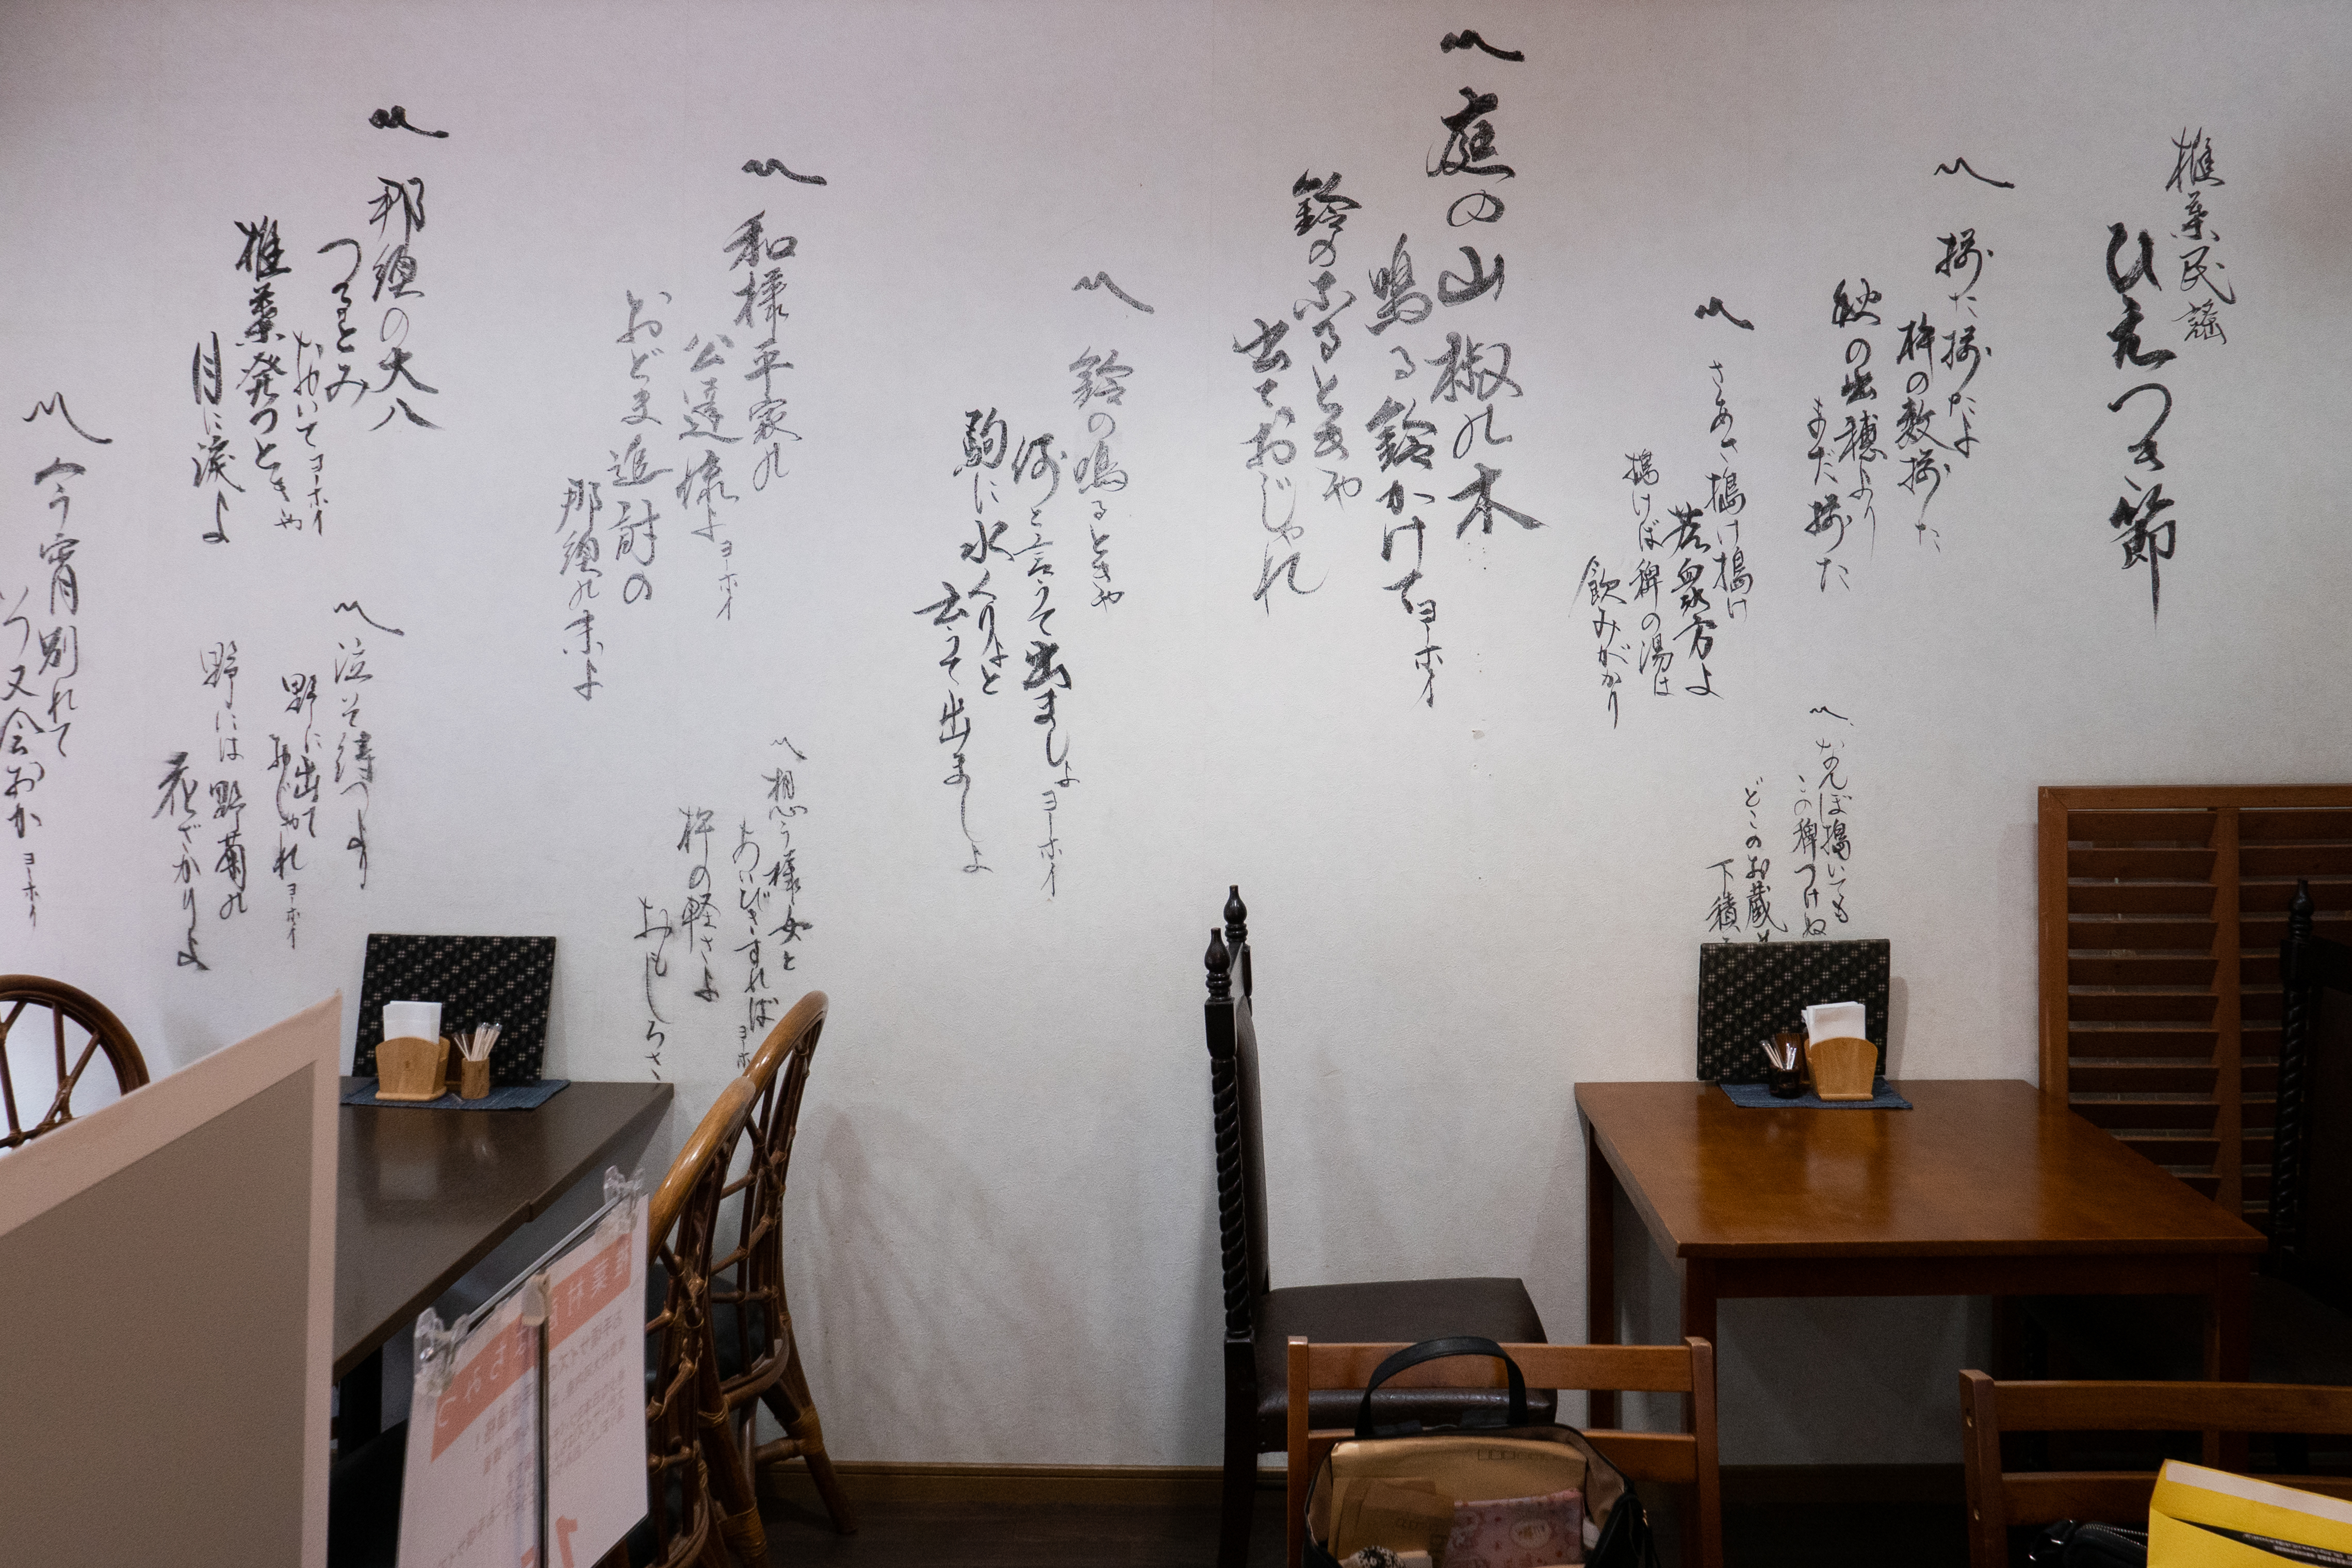 椎葉民謡
ひえつき節
〽 揃た揃たよ
杵の数揃た
秋の出穂より
まだ揃た
〽 さあさ搗け搗け
若衆方よ
搗けば稗の湯は
飲みがかり
〽 なんぼ搗いても
この稗つけぬ
どこのお蔵の
下積
〽 庭の山椒の木
鳴る鈴かけてヨーホイ
鈴の鳴るときゃ
出ておじゃれ
〽 鈴の鳴るときゃ
何と言うて出ましょヨーホイ
駒に水くりょと
言うて出ましょ
〽 和様平家の
公達様よヨーホイ
おどま追討の
那須の末よ
〽 想う様女と
あいびきすればヨーホ
杵の軽さよ
おもしろさ
〽 那須の大八
つるとみ
おいてヨーホイ
椎葉発つときゃ
目に涙よ
〽 泣いて待つより
野に出て
おじゃれヨーホイ
野には野菊の
花ざかりよ
〽 今宵別れて
いつ又会おかヨーホイ